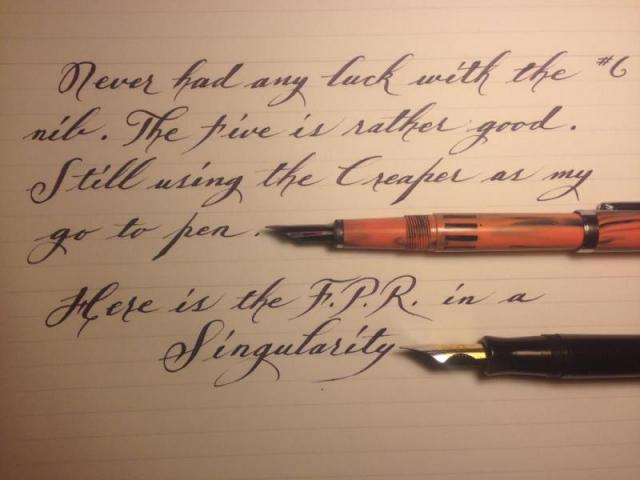 Never had any luck with the #6
nib. The five is rather good.
Still using the Creaper as my
go to pen.
Here is the F.P.R. in a
Singularity